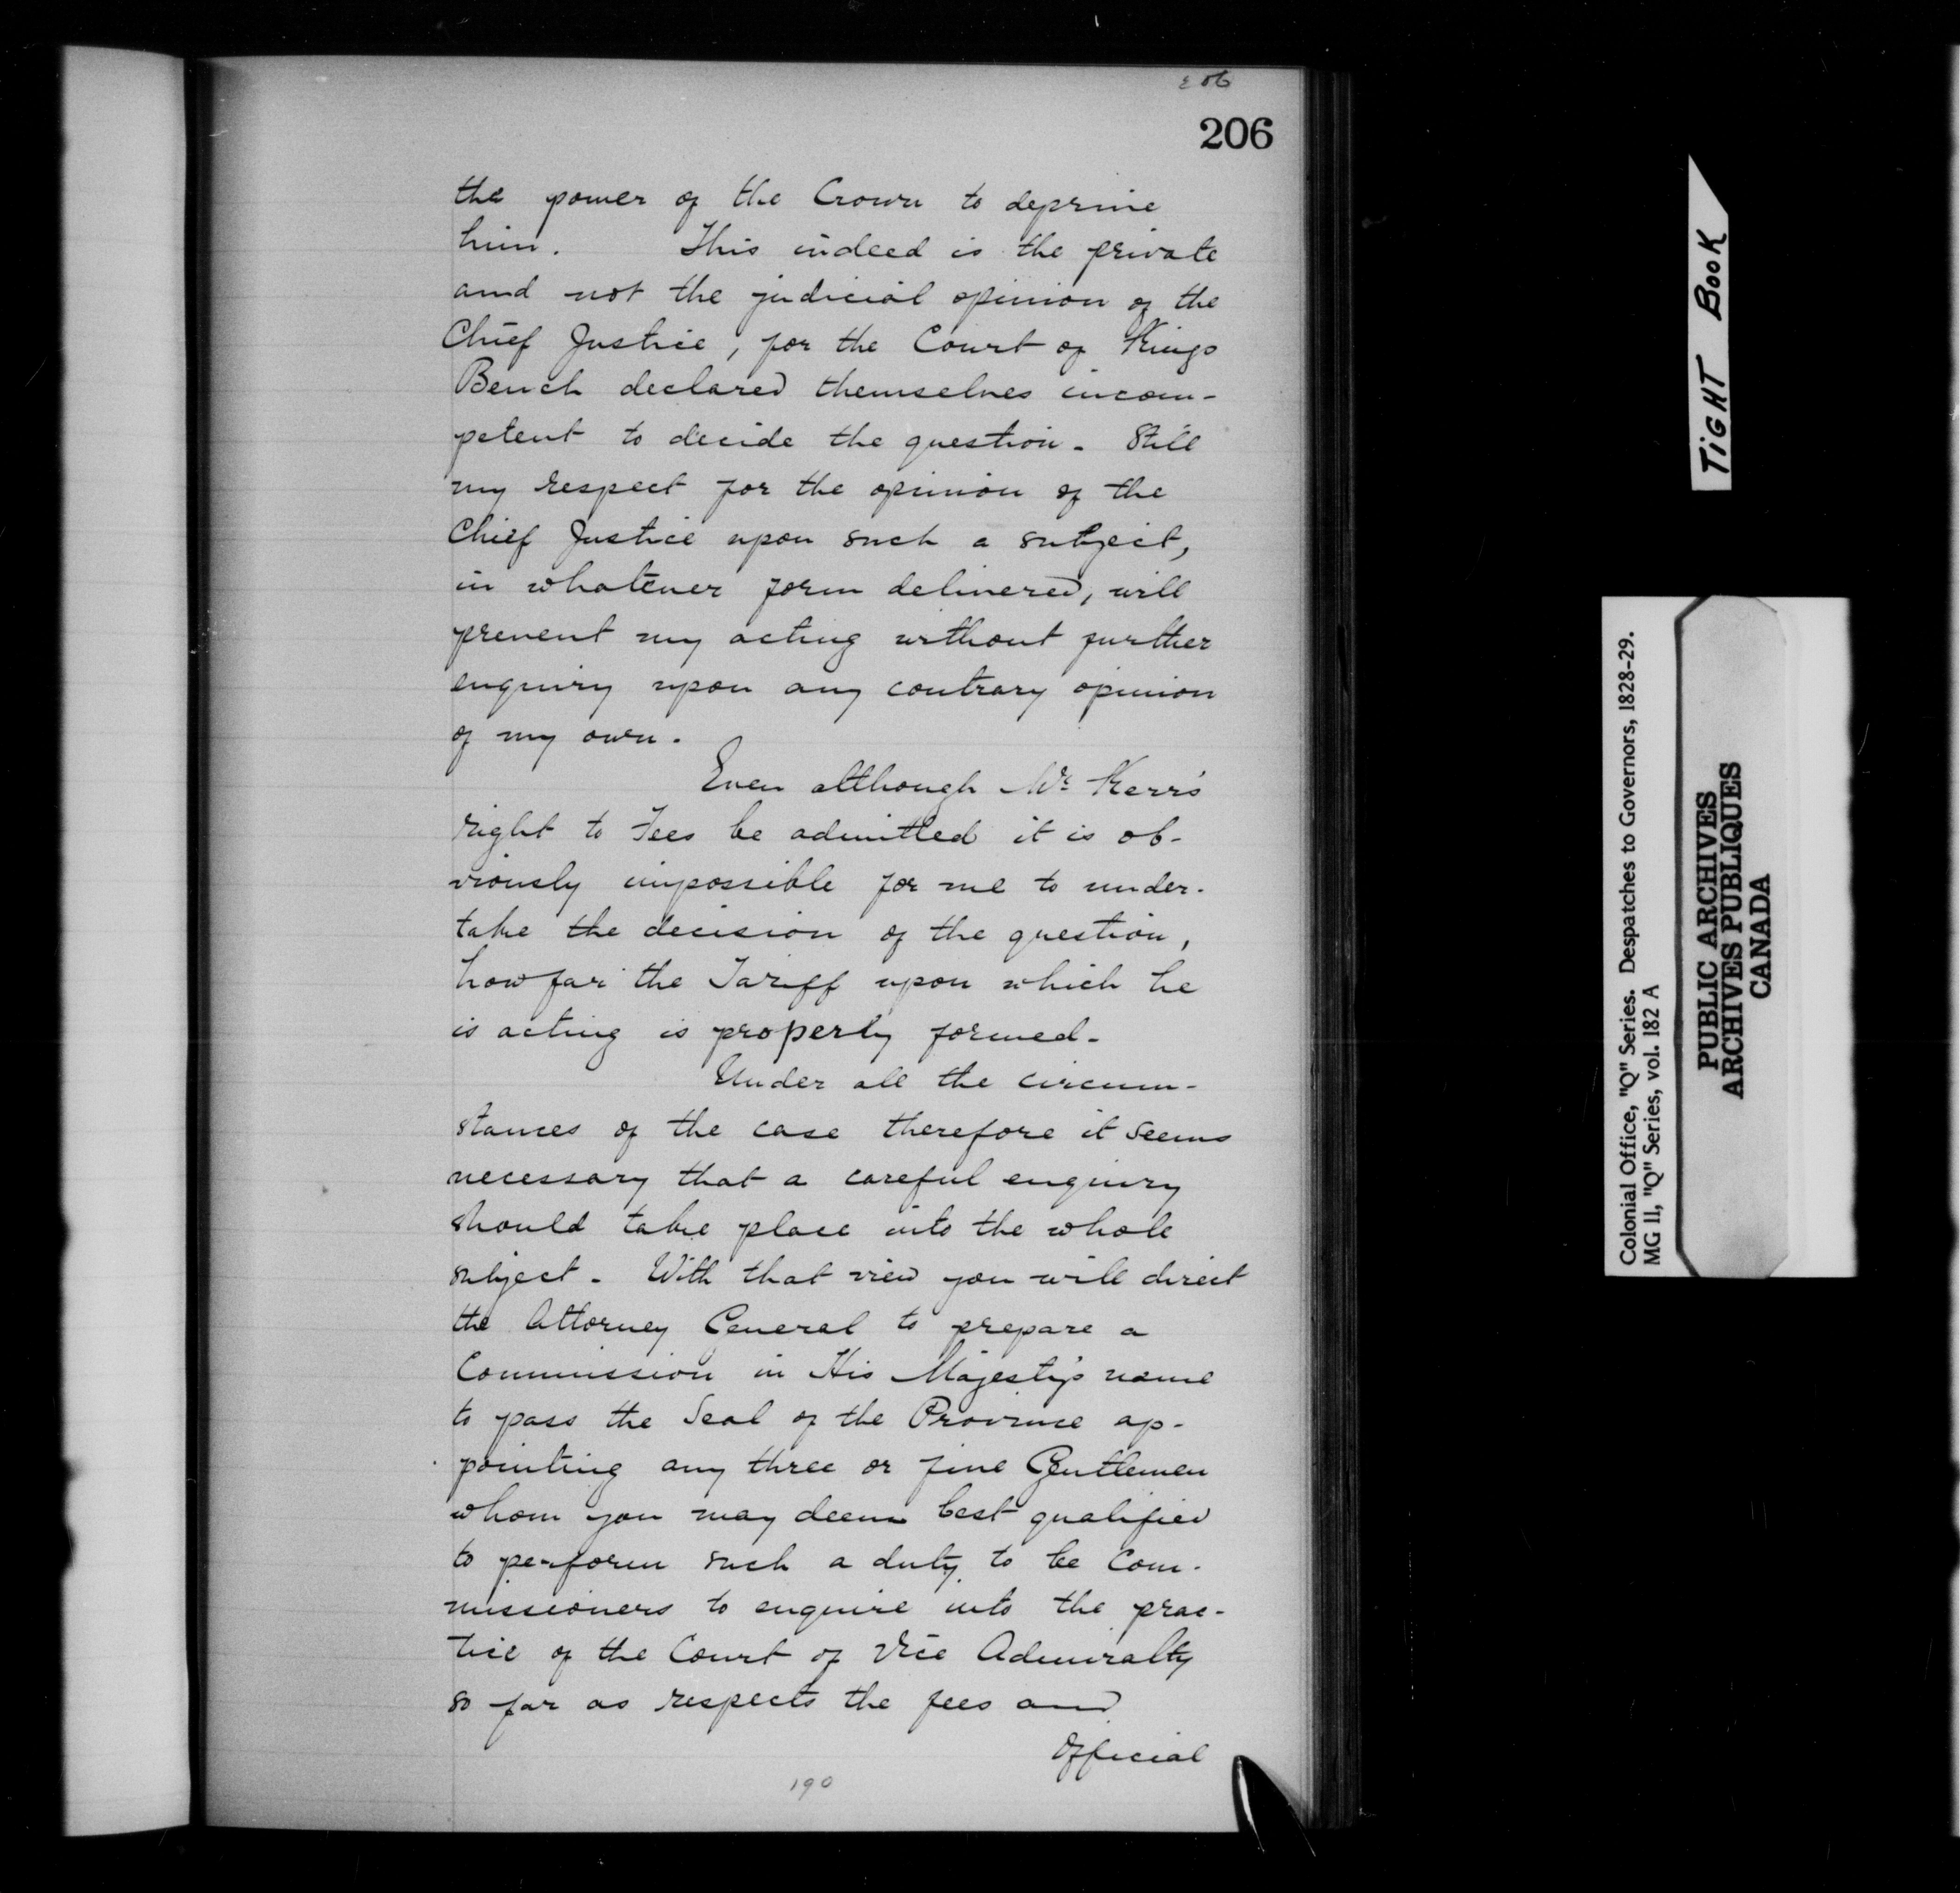 206
206
the power of the Crown to deprive
him. This indeed is the private
and not the judicial opinion of the
Chief Justice, for the Court of Kings
Bench declared themselves incom-
petent to decide the question. Still
my respect for the opinion of the
Chief Justice upon such a subject,
in whatever form delivered, will
prevent my acting without further
enquiry upon any contrary opinion
of my own.
Even although Mr. Kerr's
right to Fees be admitted it is ob-
viously impossible for me to under-
take the decision of the question,
how far the Tariff upon which he
is acting is properly formed.
Under all the circum-
stances of the case therefore it seems
necessary that a careful enquiry
should take place into the whole
subject. With that view you will direct
the Attorney General to prepare a
Commission in His Majesty's name
to pass the Seal of the Province ap-
pointing any three or five Gentlemen
whom you may deem best qualified
to perform such a duty, to be Com-
missioners to enquire into the prac-
tice of the Court of Vice Admiralty
so far as respects the fees and
Official
190
TIGHT BOOK
Colonial Office, "Q" Series. Despatches to Governors, 1828-29.
MG 11, "Q" Series, vol. 182 A
PUBLIC ARCHIVES
ARCHIVES PUBLIQUES
CANADA